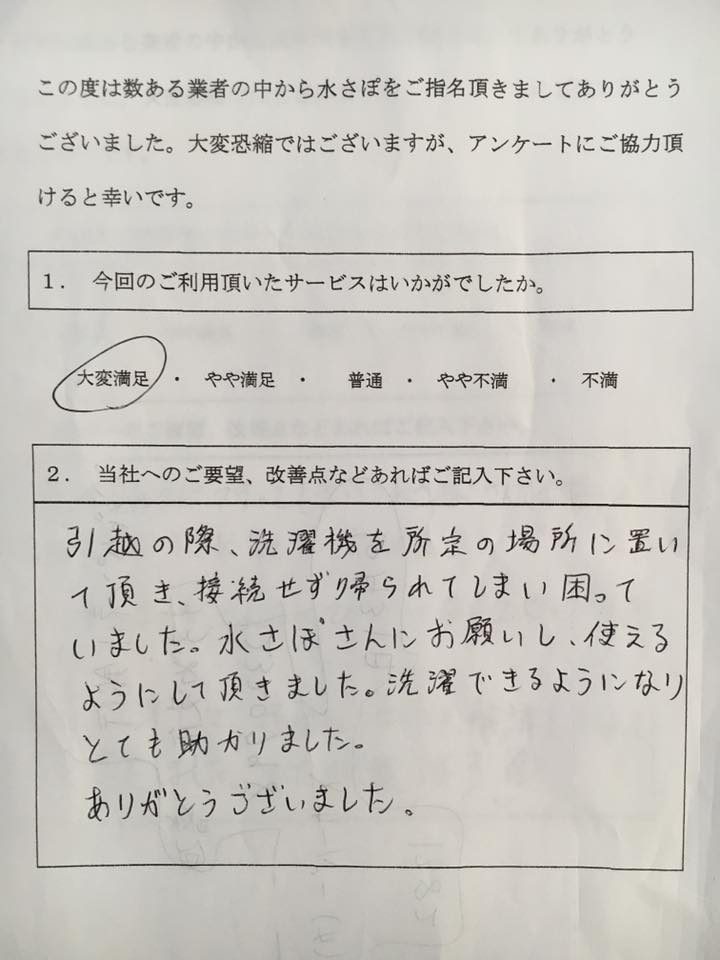 この度は数ある業者の中から水さぽをご指名頂きましてありがとう
ございました。大変恐縮ではございますが、アンケートにご協力頂
けると幸いです。
1． 今回のご利用頂いたサービスはいかがでしたか。
大変満足 ・ やや満足 ・ 普通 ・ やや不満 ・ 不満
2． 当社へのご要望、改善点などあればご記入下さい。
引越の際、洗濯機を所定の場所に置い
て頂き、接続せず帰られてしまい困って
いました。水さぽさんにお願いし、使える
ようにして頂きました。洗濯できるようになり
とても助かりました。
ありがとうございました。